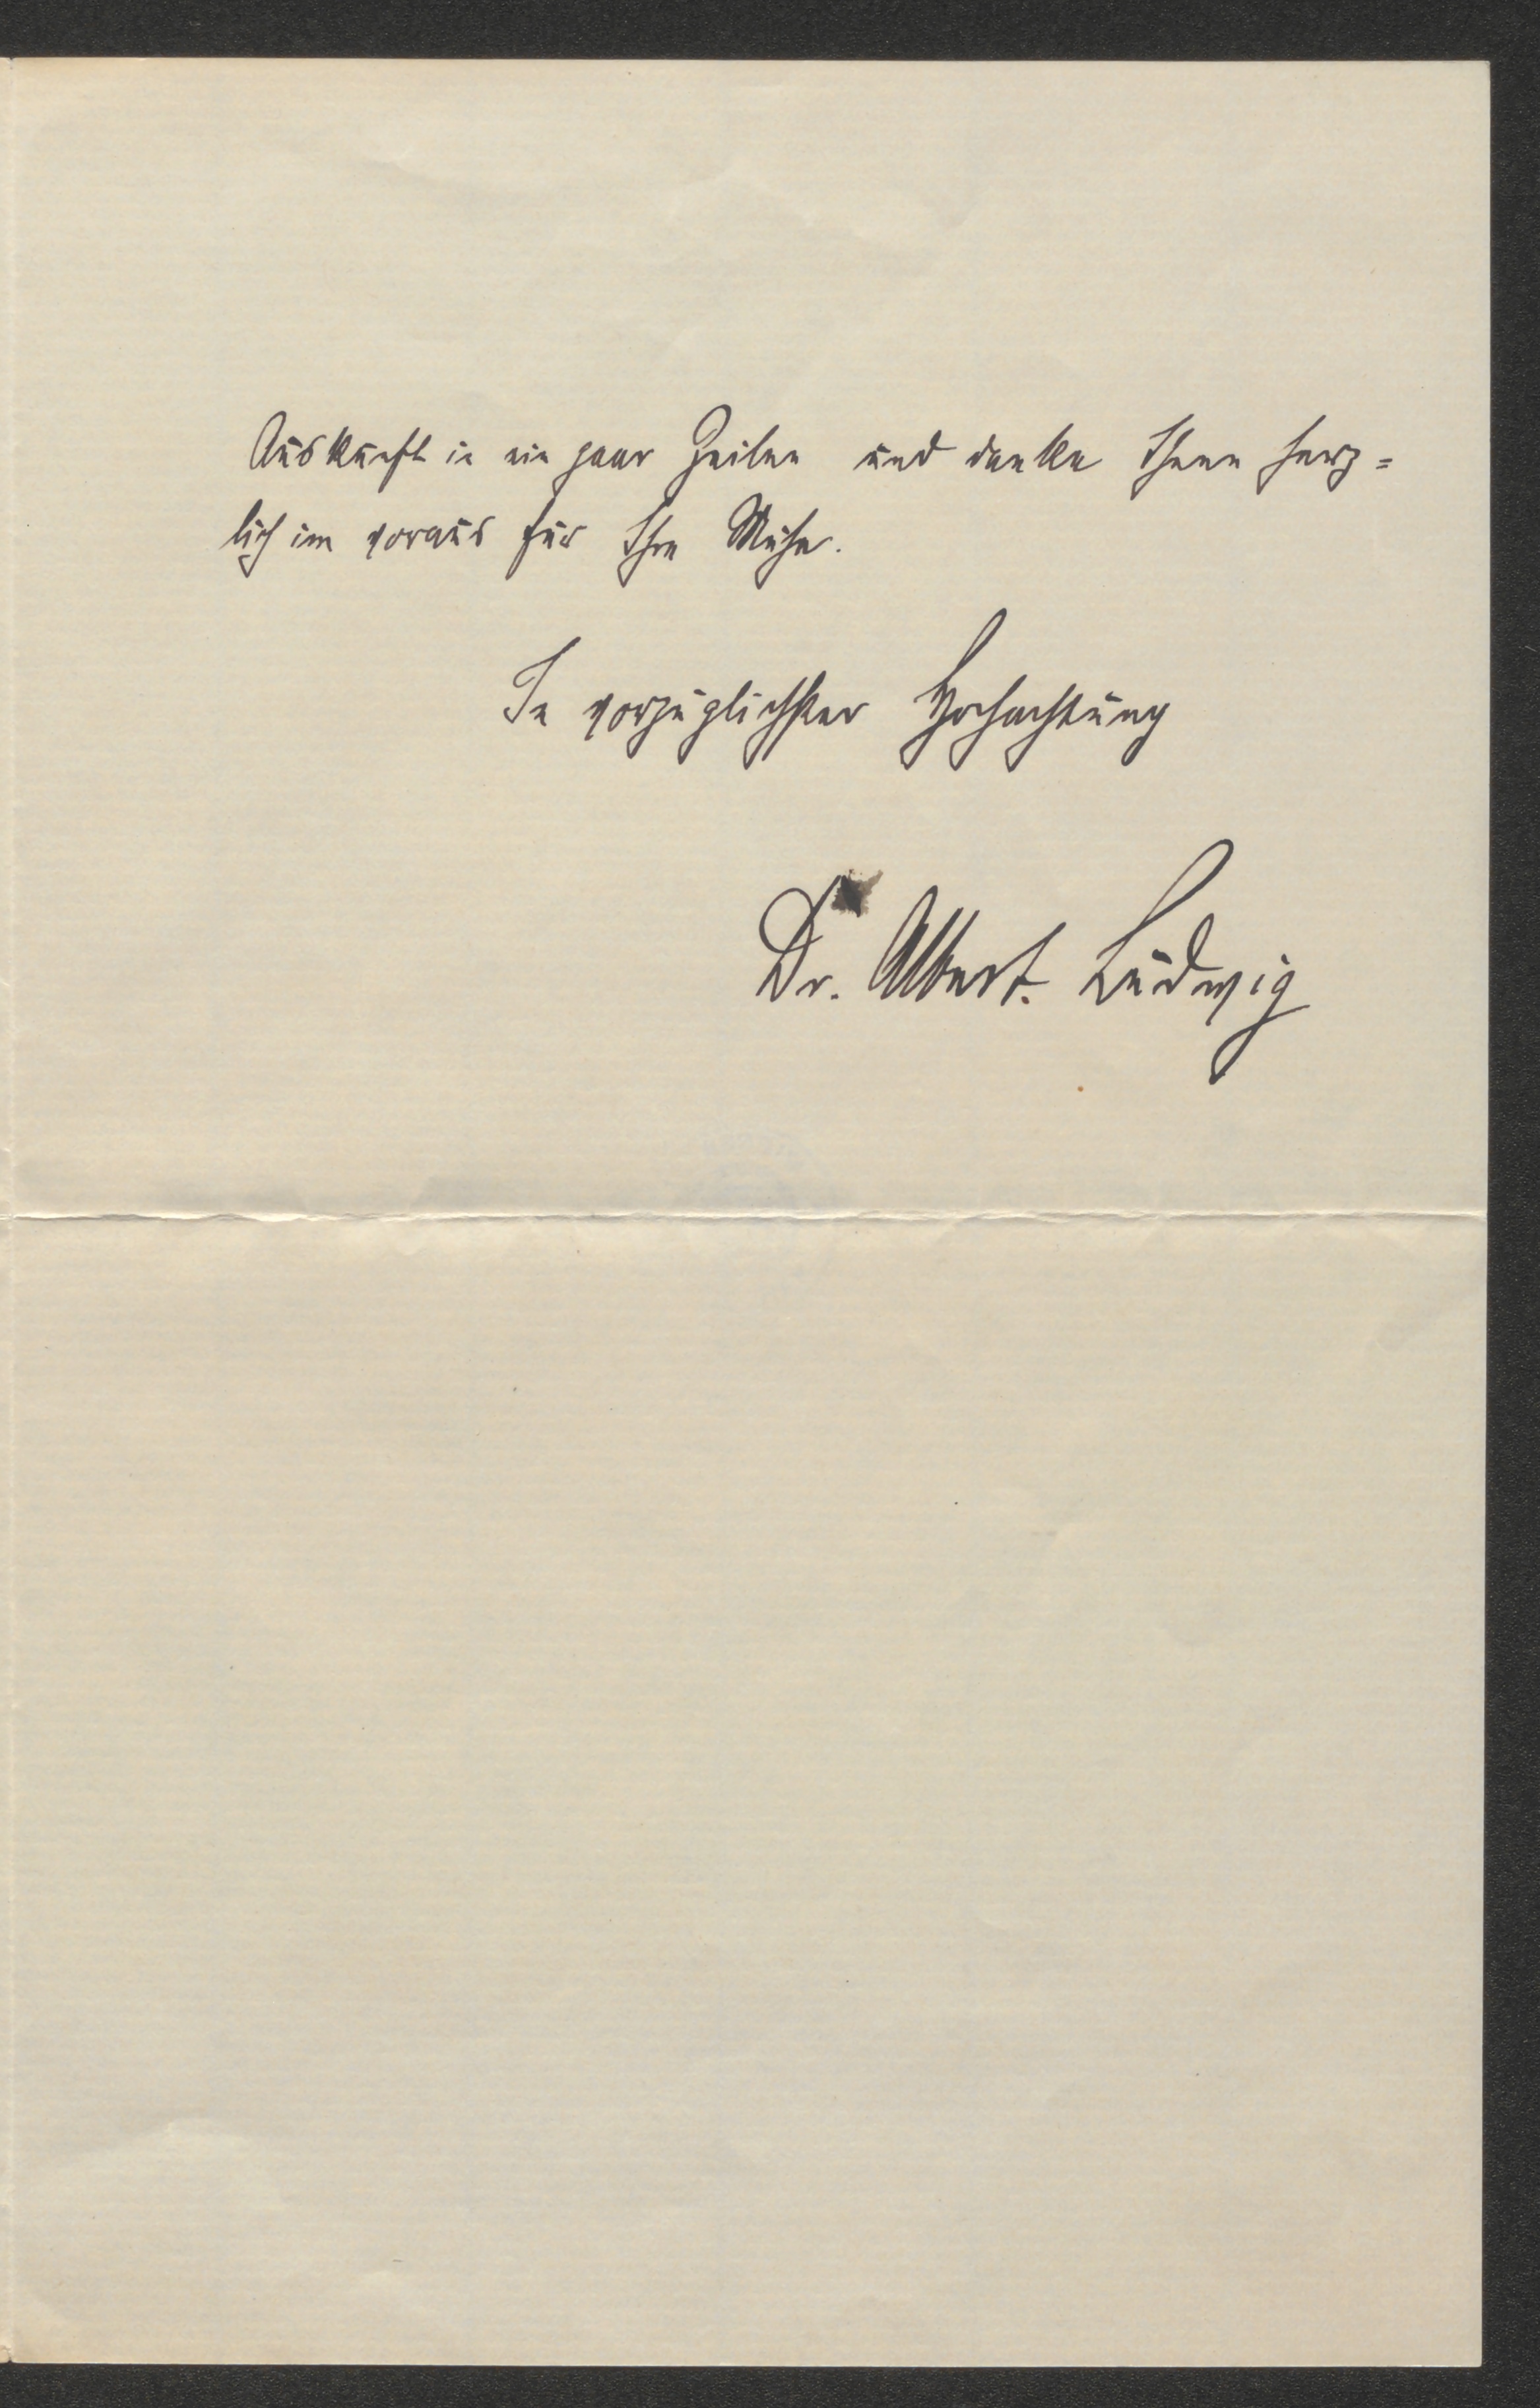 Auskunft in ein paar Zeilen und danke Ihnen herz=
lich im voraus für Ihre Mühe.
In vorzüglichster Hochachtung
Dr. Albert Ludwig